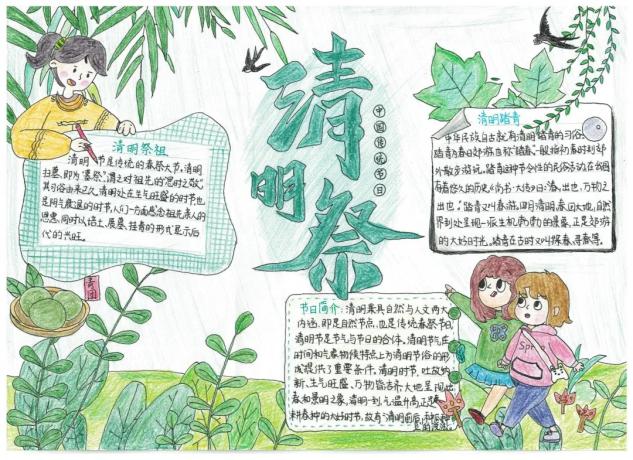 清明祭
中国传统节日
清明祭祖
清明节是传统的春祭大节,清明
扫墓,即为"墓祭",谓之对祖先的"思时之敬"
其习俗由来已久,清明处在生气旺盛的时节也
是阴气衰退的时节,人们一方面感念祖先亲人的
恩惠,同时以培土、展墓、挂青的形式显示后
代的兴旺。
青团
清明踏青
中华民族自古就有清明踏青的习俗。
踏青为春日郊游,也称"踏春",一般指初春时到郊
外散步游玩。踏青这种节令性的民俗活动在我国
有着悠久的历史《尚书·大传》曰:"春,出也,万物之
出也。"踏青又叫春游,四月清明,春回大地,自然
界到处呈现一派生机勃勃的景象,正是郊游
的大好时光。踏青在古时又叫探春、寻春等。
节日简介:清明兼具自然与人文两大
内涵,即是自然节点,也是传统春祭节日
清明节是节气与节日的合体,清明节气在
时间和气象物候特点上为清明节俗的形
成提供了重要条件,清明时节,吐故纳
新、生气旺盛,万物皆齐大地呈现出
春和景明之象,清明一到,气温升高正是
耕春种的大好时节,故有"清明前后,种瓜种
Spr